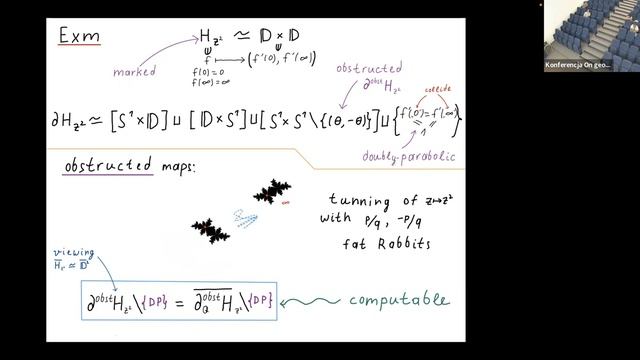 Exm
H_{z²} ≃ 𝔻 × 𝔻
marked
f ⟼ (f'(0), f'(∞))
f(0)=0
f(∞)=∞
obstructed
∂^{obst} H_{z²}
collide
∂H_{z²} ≃ [S¹×𝔻] ⊔ [𝔻×S¹] ⊔ [S¹×S¹ \ {(θ,-θ)}] ⊔ {f'(0)=f'(∞)}
1
doubly-parabolic
obstructed maps:
∞
tunning of z↦z²
with p/q, -p/q
fat Rabbits
viewing
∂^{obst} H_{z²} \ {DP} = \overline{∂_Q^{obst} H_{z²}} \ {DP}
computable
Konferencja On geo...